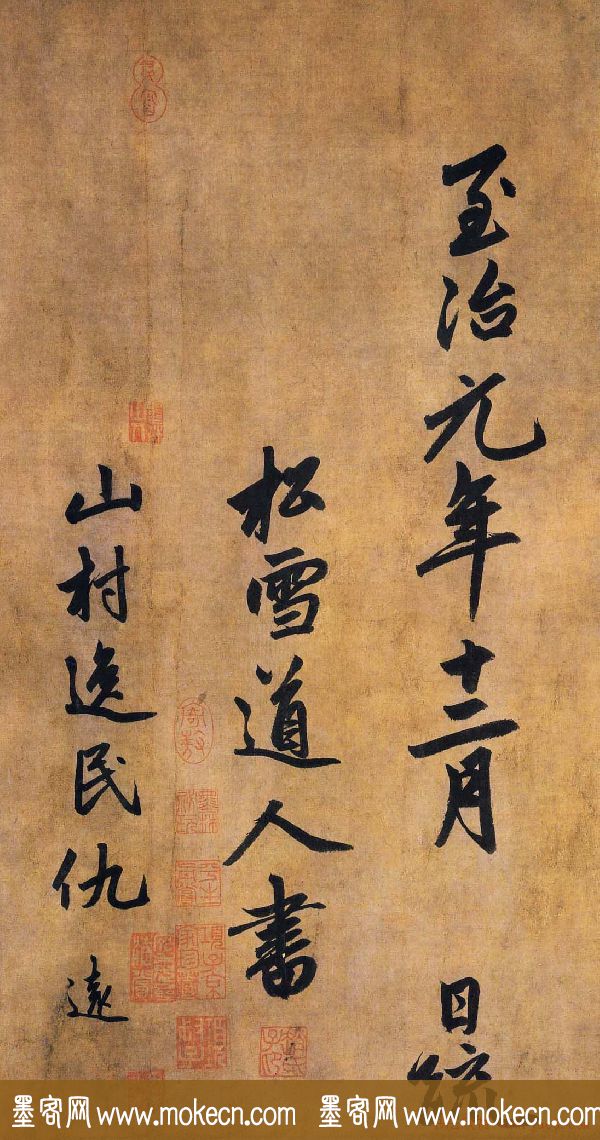 至治元年十二月 日疏
松雪道人書
山村逸民仇遠
墨客网 www.mokecn.com 墨客网 www.mokecn.com